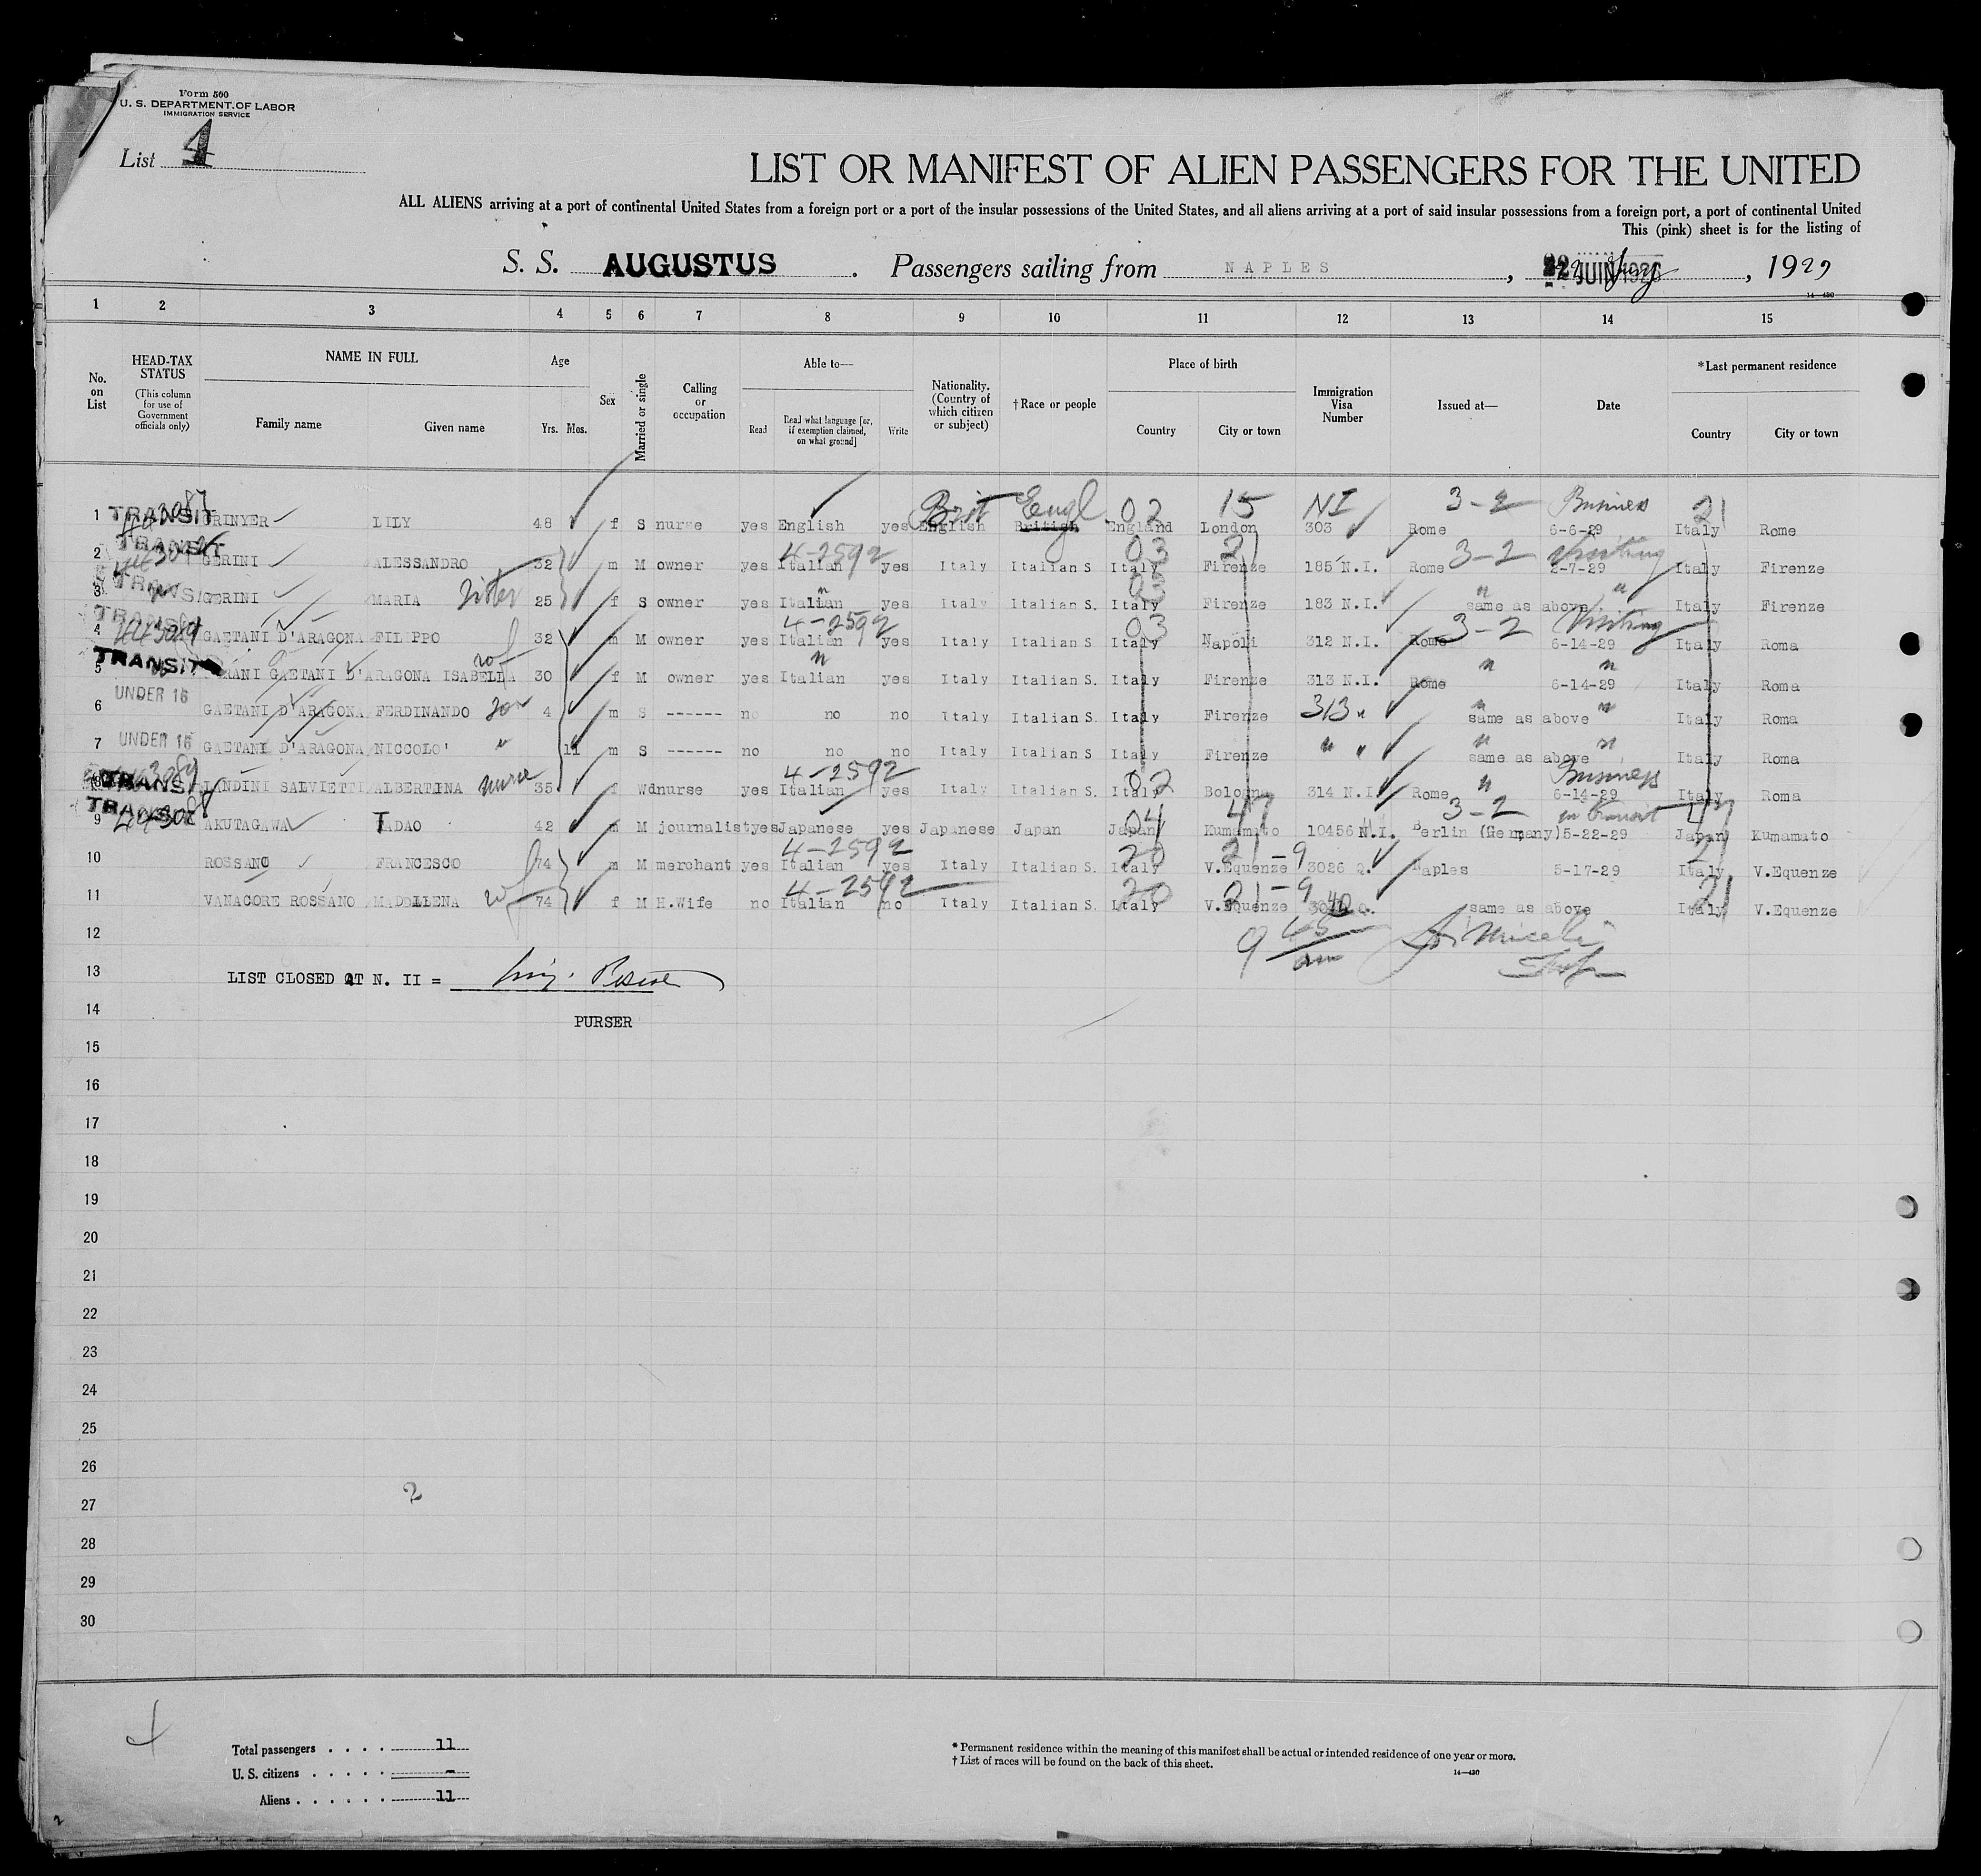 Form 500
U. S. DEPARTMENT OF LABOR
IMMIGRATION SERVICE
List 4
LIST OR MANIFEST OF ALIEN PASSENGERS FOR THE UNITED
ALL ALIENS arriving at a port of continental United States from a foreign port or a port of the insular possessions of the United States, and all aliens arriving at a port of said insular possessions from a foreign port, a port of continental United
This (pink) sheet is for the listing of
S. S. AUGUSTUS . Passengers sailing from NAPLES , 22 JUIN , 1929
14—430
1 2 3 4 5 6 7 8 9 10 11 12 13 14 15
No. on List
HEAD-TAX STATUS
(This column for use of Government officials only)
NAME IN FULL
Family name Given name
Age
Yrs. Mos.
Sex
Married or single
Calling or occupation
Able to—
Read
Read what language [or, if exemption claimed, on what ground]
Write
Nationality. (Country of which citizen or subject)
†Race or people
Place of birth
Country City or town
Immigration Visa Number
Issued at—
Date
*Last permanent residence
Country City or town
Brit Engl 02 15 NI 3-2 Business 21
1 TRANSIT RINYER LILY 48 f S nurse yes English yes English British England London 303 Rome 6-6-29 Italy Rome
TRANSIT 4-2592 03 21 3-2 Visiting
2 GERINI ALESSANDRO 32 m M owner yes Italian yes Italy Italian S Italy Firenze 185 N.I. Rome 2-7-29 Italy Firenze
TRANSIT 03 " "
3 GERINI MARIA Sister 25 f S owner yes Italian yes Italy Italian S. Italy Firenze 183 N.I. same as above Italy Firenze
4-2592 03 3-2 Visiting
4 443089 GAETANI D'ARAGONA FILIPPO 32 m M owner yes Italian yes Italy Italian S. Italy Napoli 312 N.I. Rome 6-14-29 Italy Roma
TRANSIT wf " " "
5 RANI GAETANI D'ARAGONA ISABELLA 30 f M owner yes Italian yes Italy Italian S. Italy Firenze 313 N.I. Rome 6-14-29 Italy Roma
UNDER 16
6 GAETANI D'ARAGONA FERDINANDO son 4 m S ------ no no no Italy Italian S. Italy Firenze 313 " same as above " Italy Roma
7 UNDER 16 GAETANI D'ARAGONA NICCOLO' " 11 m S ------ no no no Italy Italian S. Italy Firenze " " same as above " Italy Roma
4-2592 02 " Business
8 TRANSIT LANDINI SALVIETTI ALBERTINA nurse 35 f Wd nurse yes Italian yes Italy Italian S. Italy Bologna 314 N.I. Rome 6-14-29 Italy Roma
TRANSIT 04 47 3-2 in transit 47
9 AKUTAGAWA TADAO 42 m M journalist yes Japanese yes Japanese Japan Japan Kumamato 10456 N.I. Berlin (Germany) 5-22-29 Japan Kumamato
4-2592 20 21-9 21
10 ROSSANO FRANCESCO 74 m M merchant yes Italian yes Italy Italian S. Italy V.Equenze 3026 Q. Naples 5-17-29 Italy V.Equenze
4-2592 20 21-9 21
11 VANACORE ROSSANO MADDLLENA wf 74 f M H.Wife no Italian no Italy Italian S. Italy V.Equenze Q. same as above Italy V.Equenze
12 9 45 am
13 LIST CLOSED AT N. II =
14 PURSER
15
16
17
18
19
20
21
22
23
24
25
26
27 2
28
29
30
Total passengers . . . . 11
U. S. citizens . . . . . -
Aliens . . . . . . 11
* Permanent residence within the meaning of this manifest shall be actual or intended residence of one year or more.
† List of races will be found on the back of this sheet.
14—430
2